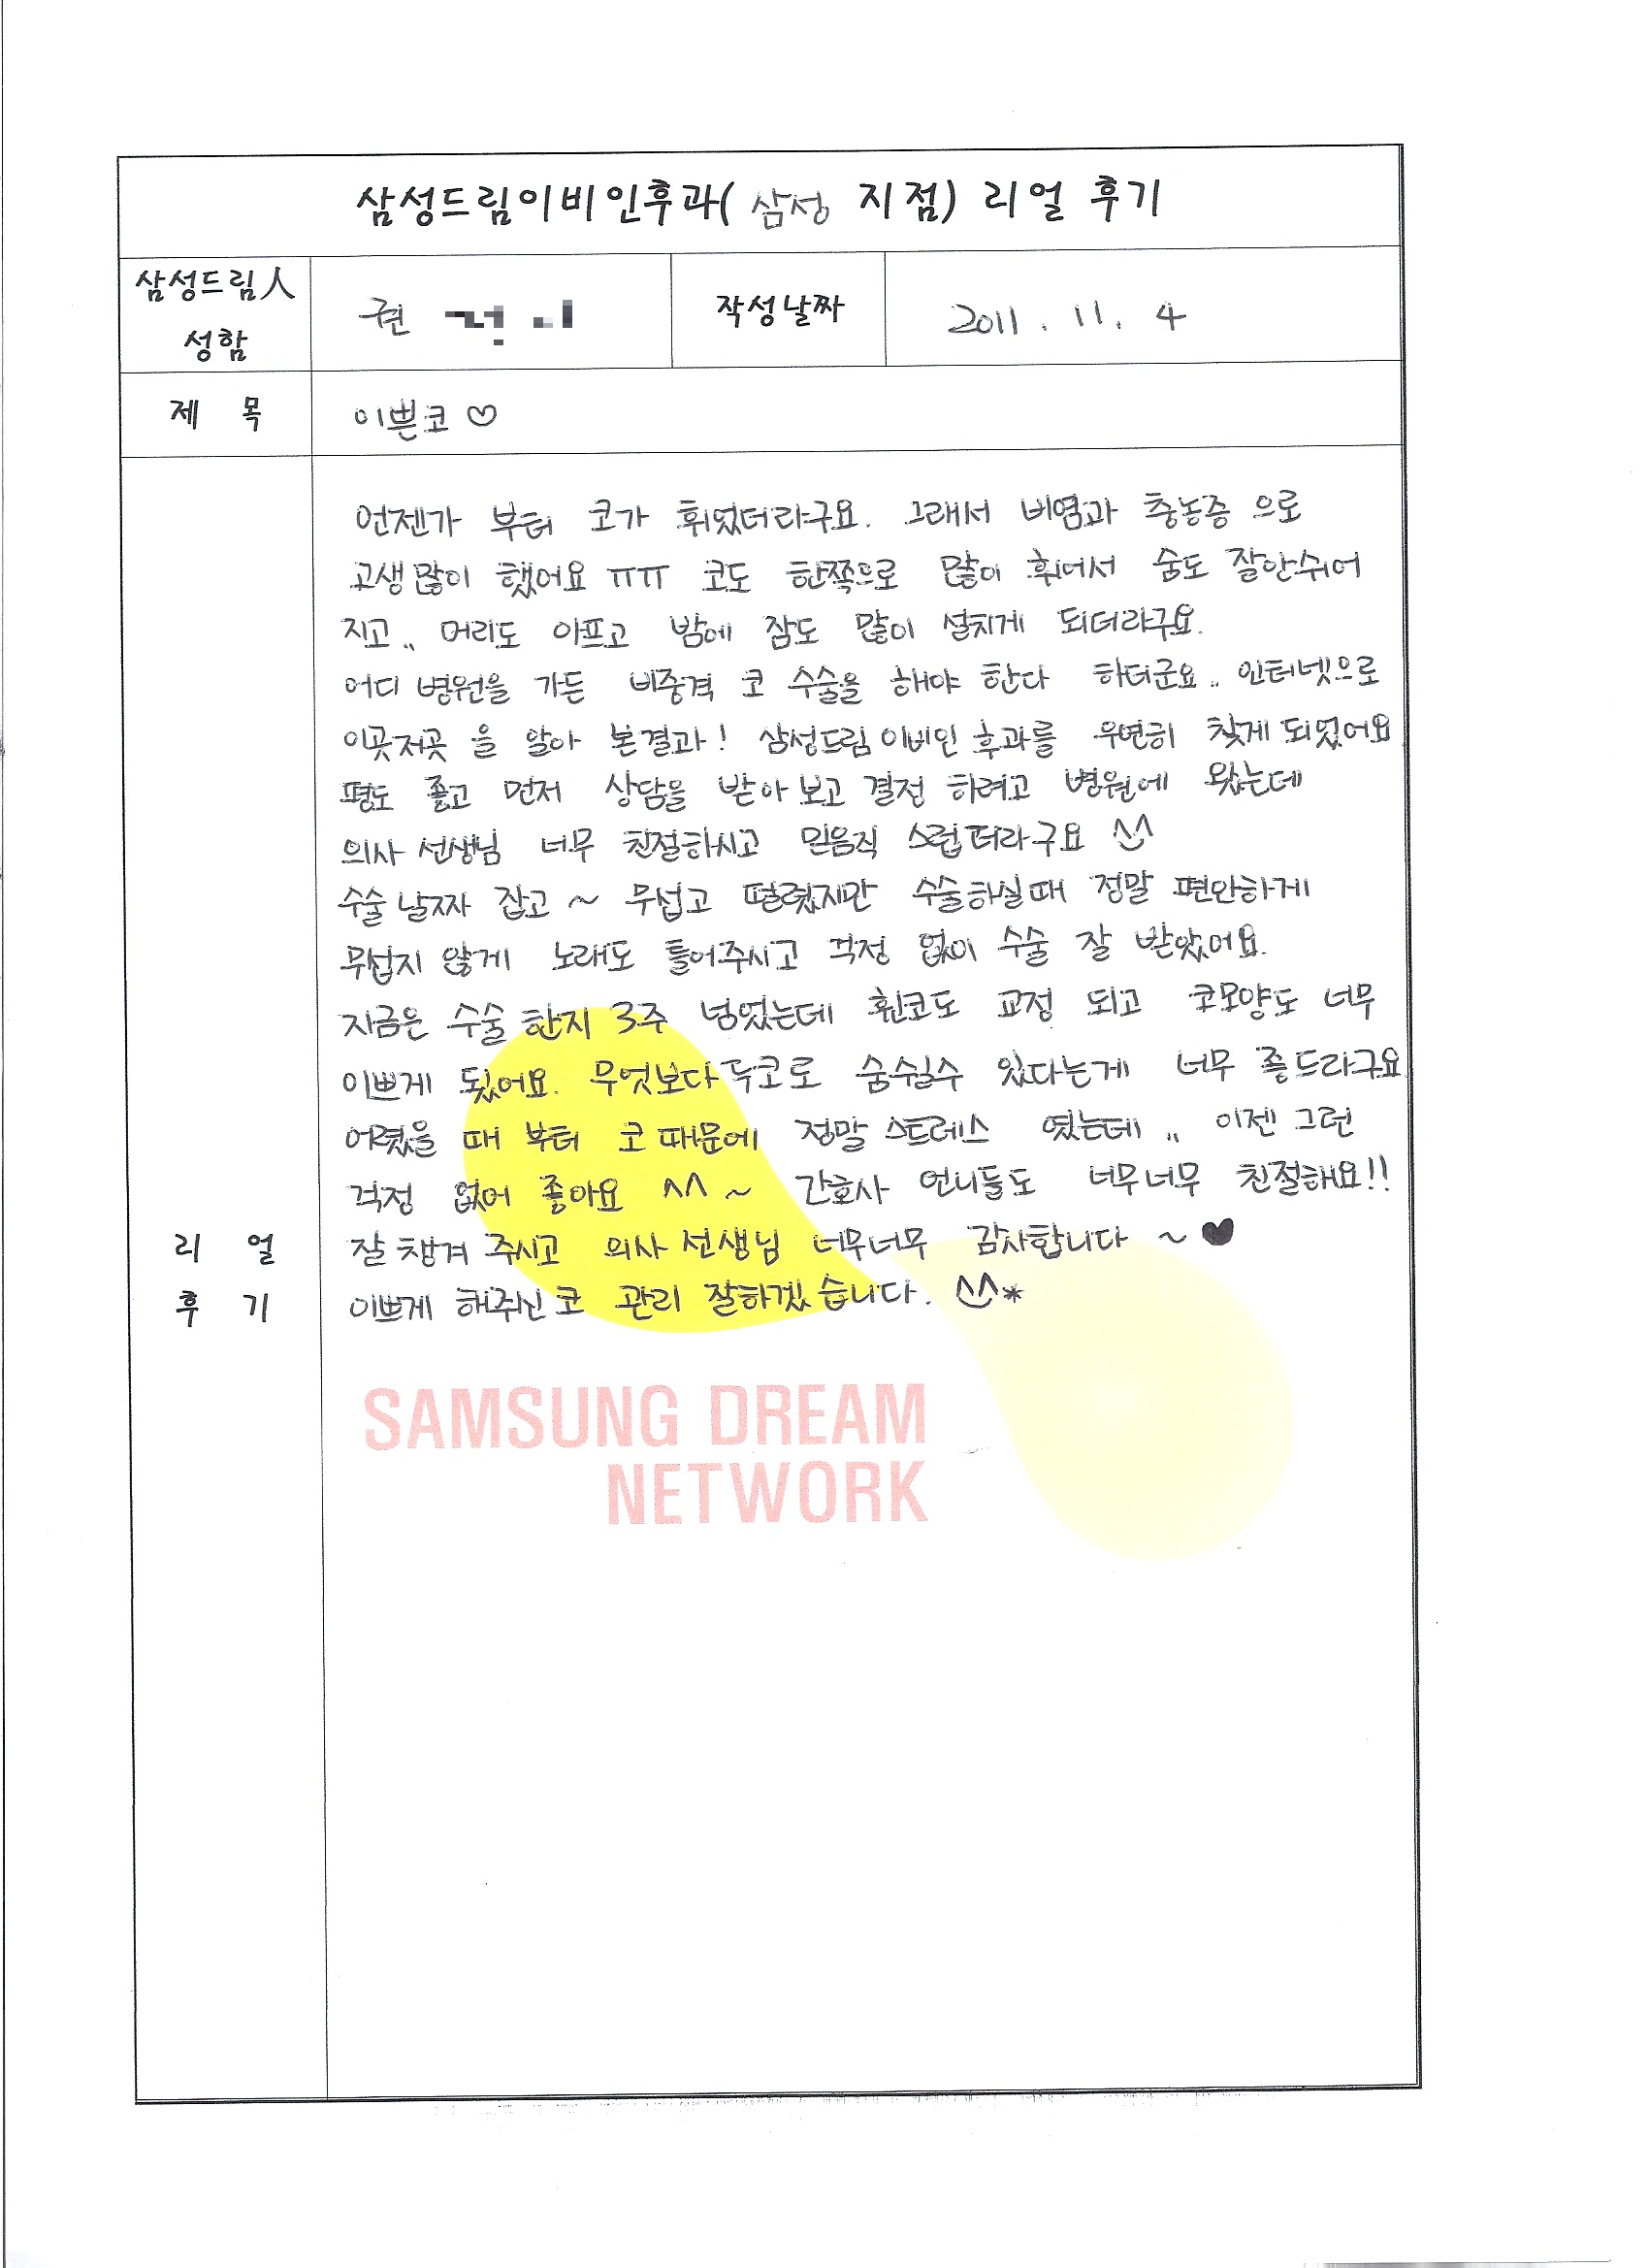 삼성드림이비인후과( 삼성 지점) 리얼 후기
삼성드림人
성함
권
작성날짜
2011. 11. 4
제 목
이쁜코 ♡
언젠가 부터 코가 휘었더라구요. 그래서 비염과 충농증 으로
고생많이 했어요 ㅠㅠ 코도 한쪽으로 많이 휘어서 숨도 잘안쉬어
지고.. 머리도 아프고 밤에 잠도 많이 설치게 되더라구요.
어디 병원을 가든 비중격 코 수술을 해야 한다 하더군요.. 인터넷으로
이곳저곳 을 알아 본결과! 삼성드림 이비인 후과를 우연히 찾게 되었어요
평도 좋고 먼저 상담을 받아 보고 결정 하려고 병원에 왔는데
의사 선생님 너무 친절하시고 믿음직 스럽더라구요 ^^
수술 날짜 잡고 ~ 무섭고 떨렸지만 수술하실때 정말 편안하게
무섭지 않게 노래도 틀어주시고 걱정 없이 수술 잘 받았어요.
지금은 수술 한지 3주 넘었는데 휜코도 교정 되고 코모양도 너무
이쁘게 됬어요. 무엇보다 두코로 숨쉴수 있다는게 너무 좋드라구요
어렸을 때 부터 코 때문에 정말 스트레스 였는데 .. 이젠 그런
걱정 없어 좋아요 ^^ ~ 간호사 언니들도 너무너무 친절해요!!
잘 챙겨 주시고 의사 선생님 너무너무 감사합니다 ~ ♥
이쁘게 해주신 코 관리 잘하겠습니다. ^^*
리 얼
후 기
SAMSUNG DREAM
NETWORK